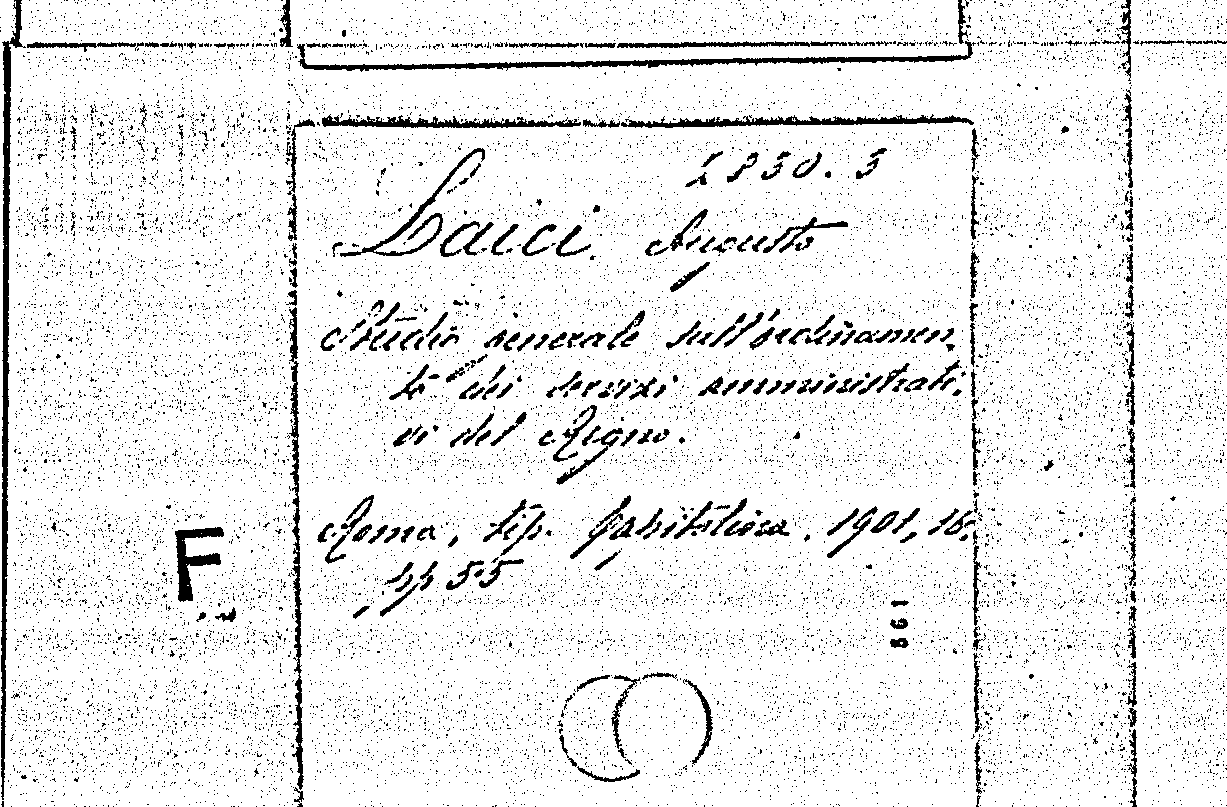 2830.5
Laici. Augusto
Studio generale sull'ordinamen-
to dei servizi amministrati-
vi del Regno.
Roma, tip. Capitolina, 1901, 16.
pp 55
F